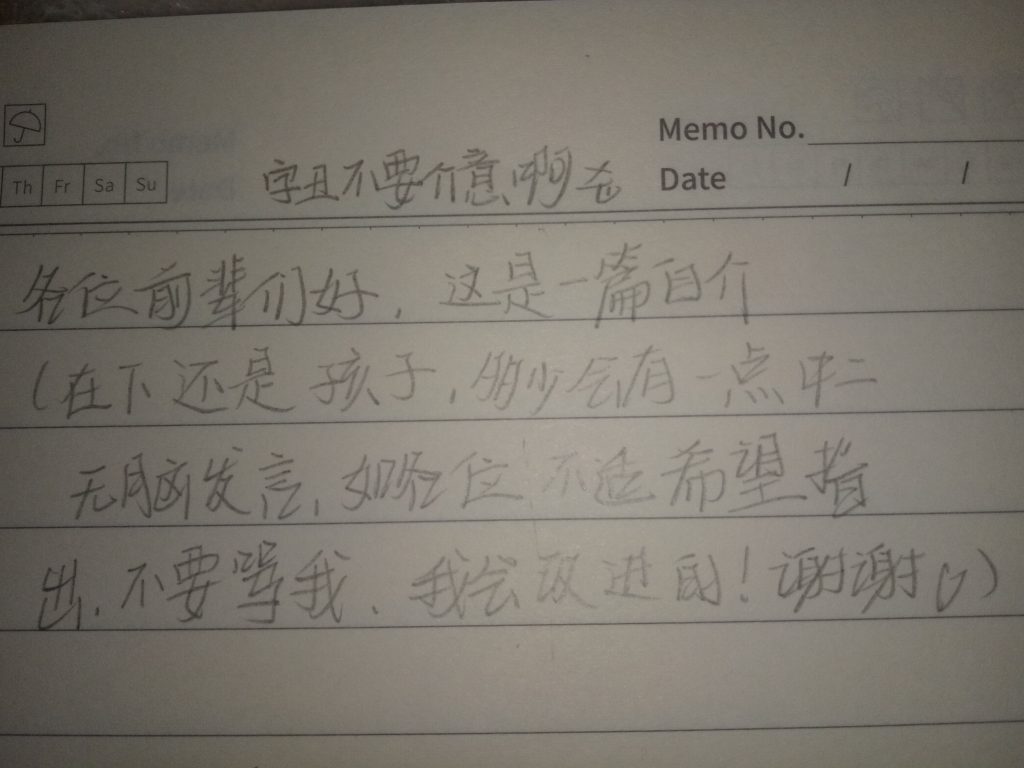 Memo No.
Th Fr Sa Su
Date / /
字丑不要介意啊
各位前辈们好，这是一篇自介
（在下还是孩子，多少会有一点中二
无脑发言，如各位不适希望指
出，不要骂我，我会改进的！谢谢）